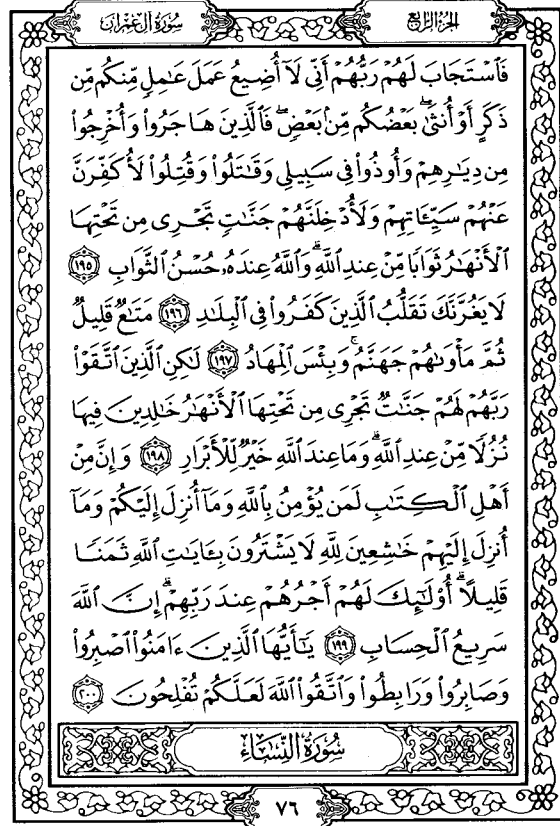 سُورَةُ آلِ عِمْرَانَ
الجُزْءُ الرَّابِعُ
فَٱسْتَجَابَ لَهُمْ رَبُّهُمْ أَنِّي لَآ أُضِيعُ عَمَلَ عَٰمِلٍ مِّنكُم مِّن
ذَكَرٍ أَوْ أُنثَىٰۖ بَعْضُكُم مِّنۢ بَعْضٖۖ فَٱلَّذِينَ هَاجَرُوا۟ وَأُخْرِجُوا۟
مِن دِيَٰرِهِمْ وَأُوذُوا۟ فِي سَبِيلِي وَقَٰتَلُوا۟ وَقُتِلُوا۟ لَأُكَفِّرَنَّ
عَنْهُمْ سَيِّـَٔاتِهِمْ وَلَأُدْخِلَنَّهُمْ جَنَّٰتٍ تَجْرِى مِن تَحْتِهَا
ٱلْأَنْهَٰرُ ثَوَابًا مِّنْ عِندِ ٱللَّهِۗ وَٱللَّهُ عِندَهُۥ حُسْنُ ٱلثَّوَابِ ١٩٥
لَا يَغُرَّنَّكَ تَقَلُّبُ ٱلَّذِينَ كَفَرُوا۟ فِى ٱلْبِلَٰدِ ١٩٦ مَتَٰعٌ قَلِيلٌ
ثُمَّ مَأْوَىٰهُمْ جَهَنَّمُۚ وَبِئْسَ ٱلْمِهَادُ ١٩٧ لَٰكِنِ ٱلَّذِينَ ٱتَّقَوْا۟
رَبَّهُمْ لَهُمْ جَنَّٰتٌ تَجْرِى مِن تَحْتِهَا ٱلْأَنْهَٰرُ خَٰلِدِينَ فِيهَا
نُزُلًا مِّنْ عِندِ ٱللَّهِۗ وَمَا عِندَ ٱللَّهِ خَيْرٌ لِّلْأَبْرَارِ ١٩٨ وَإِنَّ مِنْ
أَهْلِ ٱلْكِتَٰبِ لَمَن يُؤْمِنُ بِٱللَّهِ وَمَآ أُنزِلَ إِلَيْكُمْ وَمَآ
أُنزِلَ إِلَيْهِمْ خَٰشِعِينَ لِلَّهِ لَا يَشْتَرُونَ بِـَٔايَٰتِ ٱللَّهِ ثَمَنًا
قَلِيلًاۗ أُو۟لَٰٓئِكَ لَهُمْ أَجْرُهُمْ عِندَ رَبِّهِمْۗ إِنَّ ٱللَّهَ
سَرِيعُ ٱلْحِسَابِ ١٩٩ يَٰٓأَيُّهَا ٱلَّذِينَ ءَامَنُوا۟ ٱصْبِرُوا۟
وَصَابِرُوا۟ وَرَابِطُوا۟ وَٱتَّقُوا۟ ٱللَّهَ لَعَلَّكُمْ تُفْلِحُونَ ٢٠٠
سُورَةُ النِّسَاءِ
٧٦